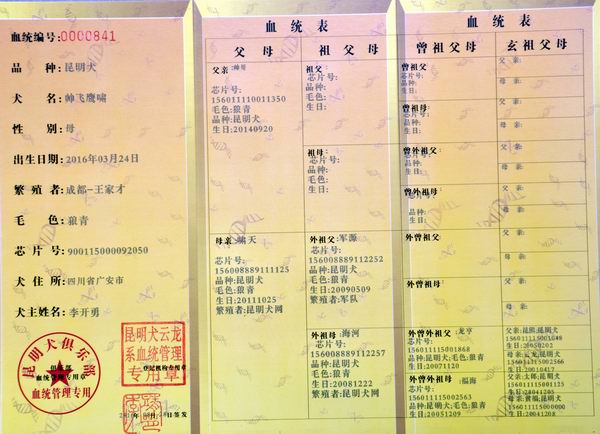 血统编号:0000841
品 种:昆明犬
犬 名:帅飞鹰啸
性 别:母
出生日期:2016年03月24日
繁殖者:成都-王家才
毛 色:狼青
芯片号:900115000092050
犬住所:四川省广安市
犬主姓名:李开勇
昆明犬俱乐部
血统管理专用
昆明犬云龙
系血统管理
专用章
登记机构负责章
血统表
父母
祖父母
父亲:帅哥
芯片号:
156011110011350
毛色:狼青
品种:昆明犬
生日:20140920
母亲:啸天
芯片号:
156008889111125
品种:昆明犬
毛色:狼青
生日:20111025
繁殖者:昆明犬网
祖父:
芯片号:
毛色:
品种:
生日:
祖母:
芯片号:
品种:
毛色:
生日:
外祖父:军源
芯片号:
156008889112252
品种:昆明犬
毛色:狼青
生日:20090509
繁殖者:军队
外祖母:海河
芯片号:
156008889112257
品种:昆明犬
毛色:狼青
生日:20081222
繁殖者:昆明犬网
血统表
曾祖父母
玄祖父母
曾祖父:
芯片号:
品种:
生日:
曾祖母:
芯片号:
品种:
生日:
曾外祖父:
芯片号:
品种:
生日:
曾外祖母:
品种:
生日:
外曾祖父:
外曾祖母:
曾外曾外祖父:龙亨
156011115001868
品种:昆明犬;毛色:狼青
生日:20071120
曾外曾外祖母:福海
156011115002563
品种:昆明犬;毛色:狼青
生日:20051209
父亲:
母亲:
父亲:
母亲:
父亲:
母亲:
父亲:
母亲:
父亲:
母亲:
父亲:
母亲:
生日:20050202
母亲:云龙;昆明犬
生日:20010417
父亲:太郎;昆明犬
156011115001125
生日:20041205
母亲:黄福;昆明犬
156011115000000
生日:20041208